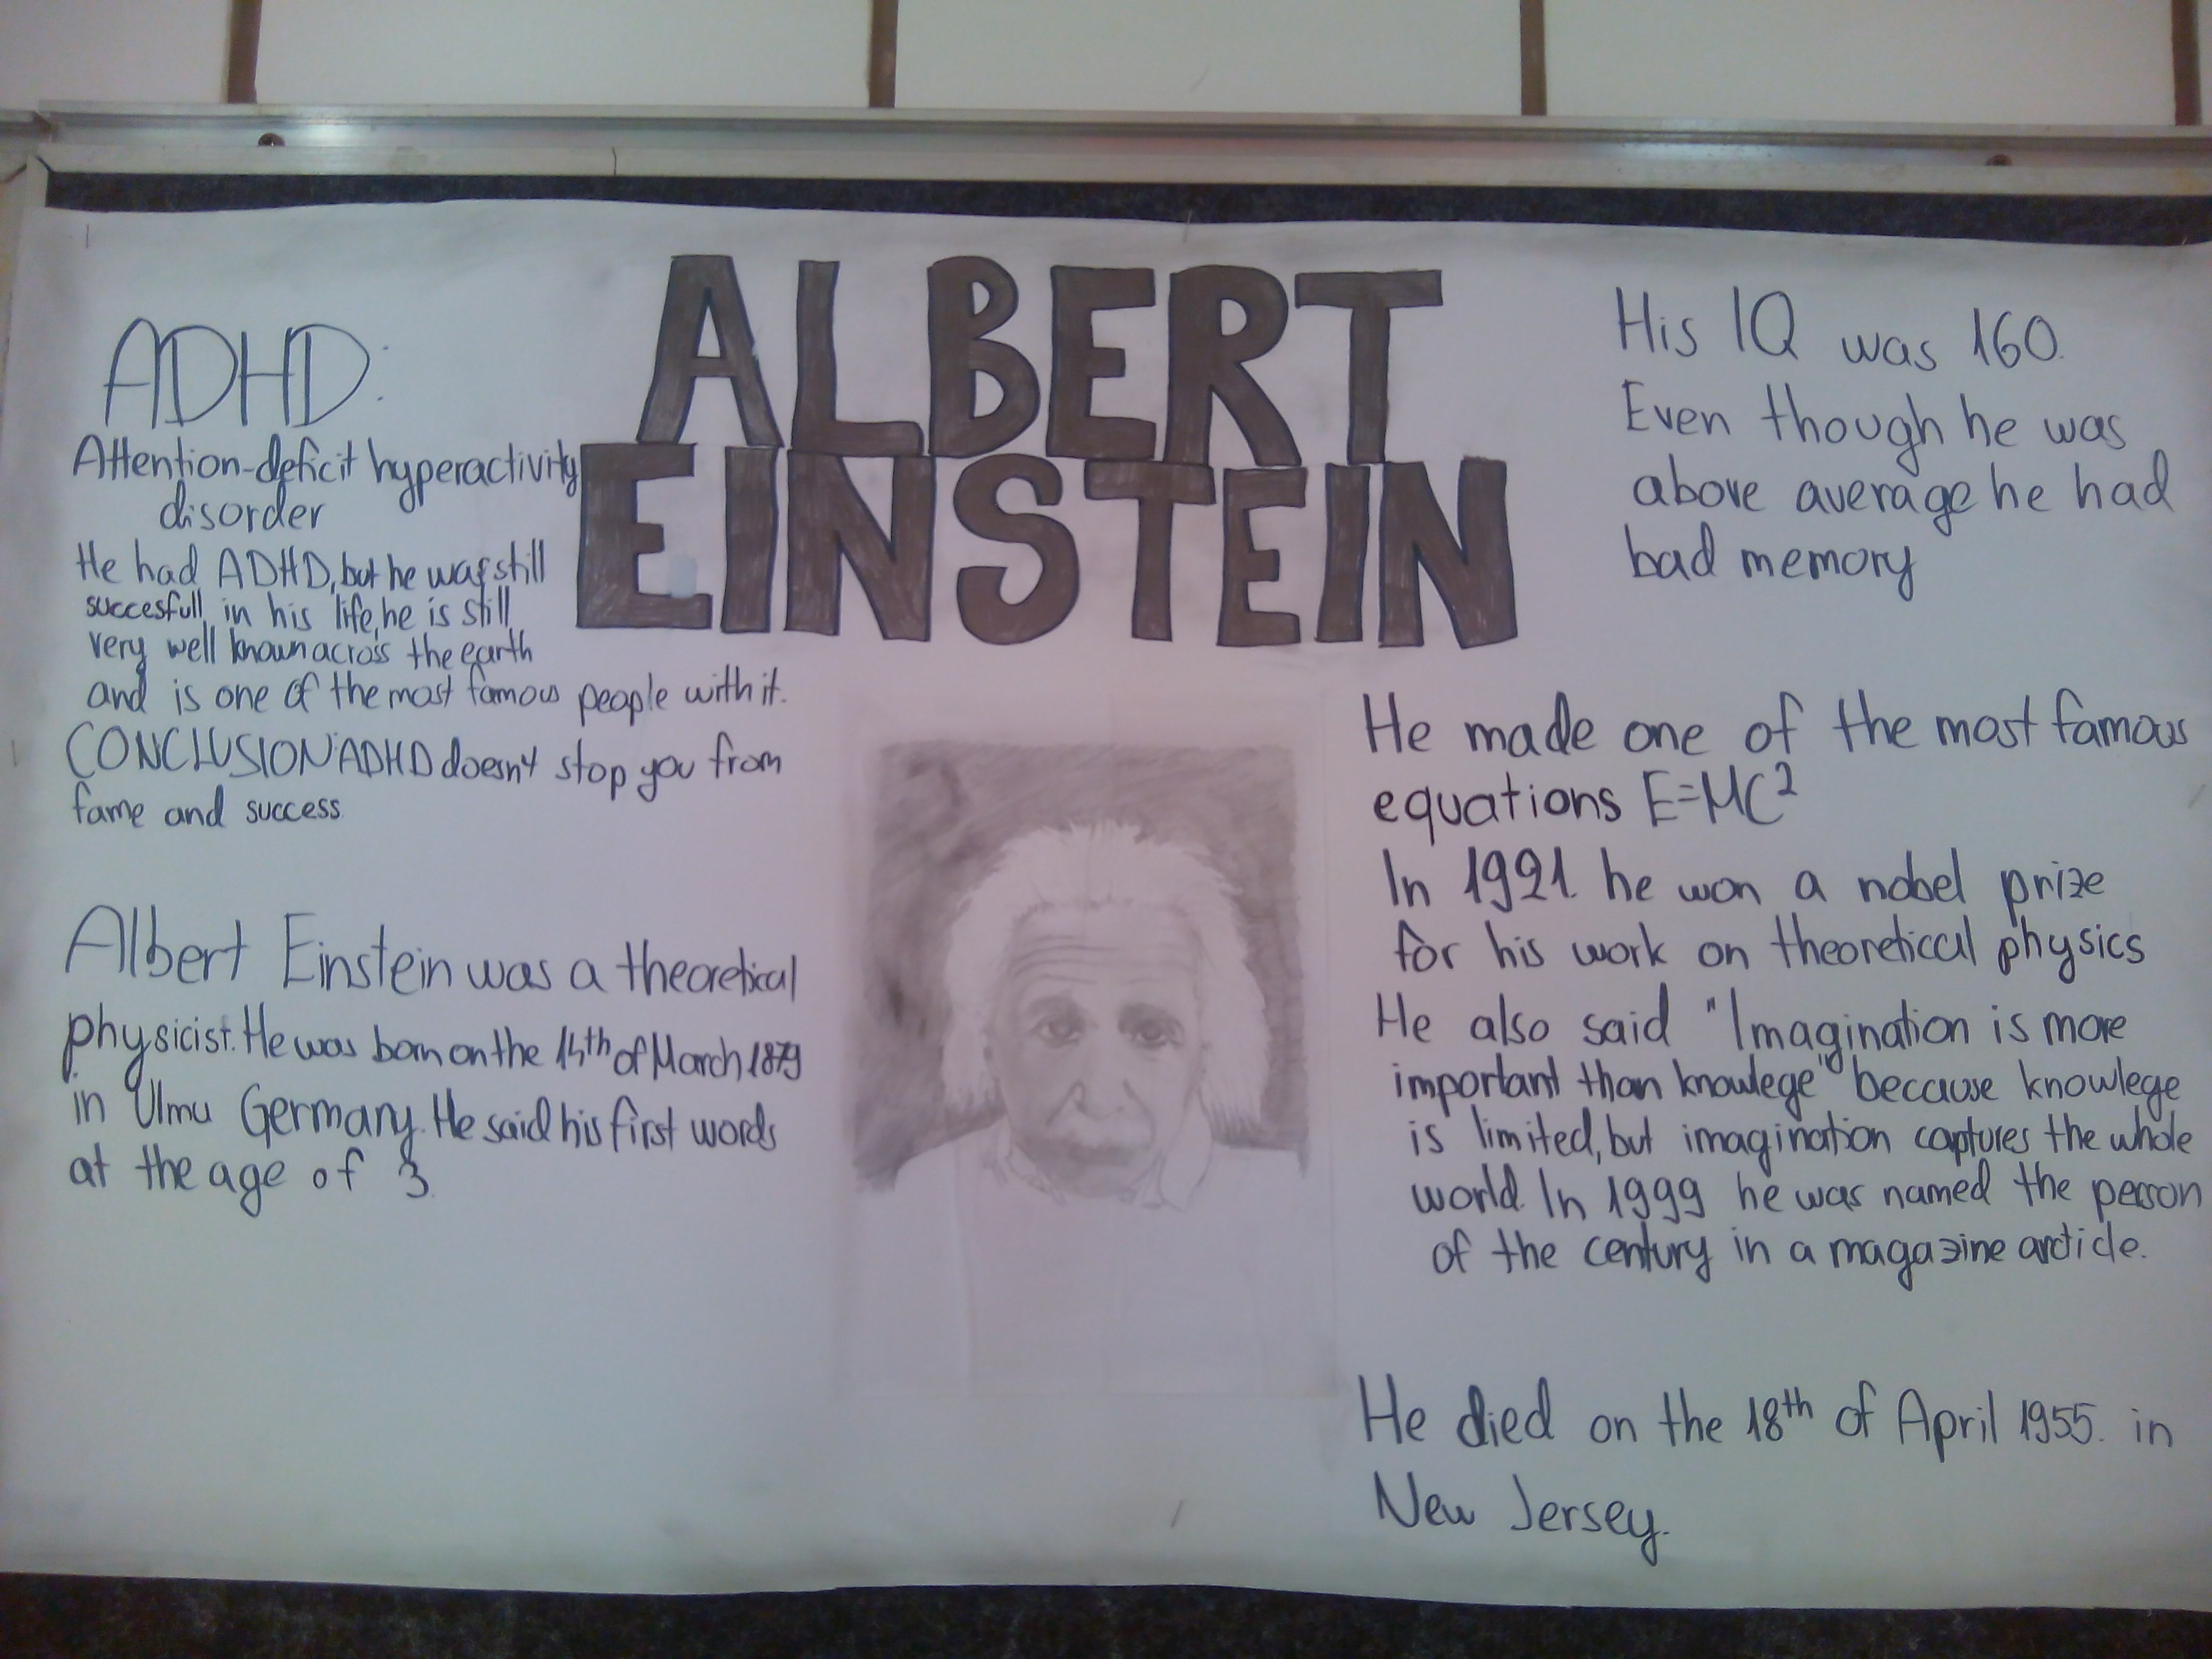 ALBERT
EINSTEIN
ADHD:
Attention-deficit hyperactivity
disorder
He had ADHD, but he was still
succesfull in his life, he is still
very well known across the earth
and is one of the most famous people with it.
CONCLUSION: ADHD doesn't stop you from
fame and success
Albert Einstein was a theoretical
physicist. He was born on the 14th of March 1879
in Ulmu Germany. He said his first words
at the age of 3.
His IQ was 160.
Even though he was
above average he had
bad memory
He made one of the most famous
equations E=MC²
In 1921. he won a nobel prize
for his work on theoretical physics
He also said "Imagination is more
important than knowlege" because knowlege
is limited, but imagination captures the whole
world. In 1999 he was named the person
of the century in a magazine article.
He died on the 18th of April 1955. in
New Jersey.